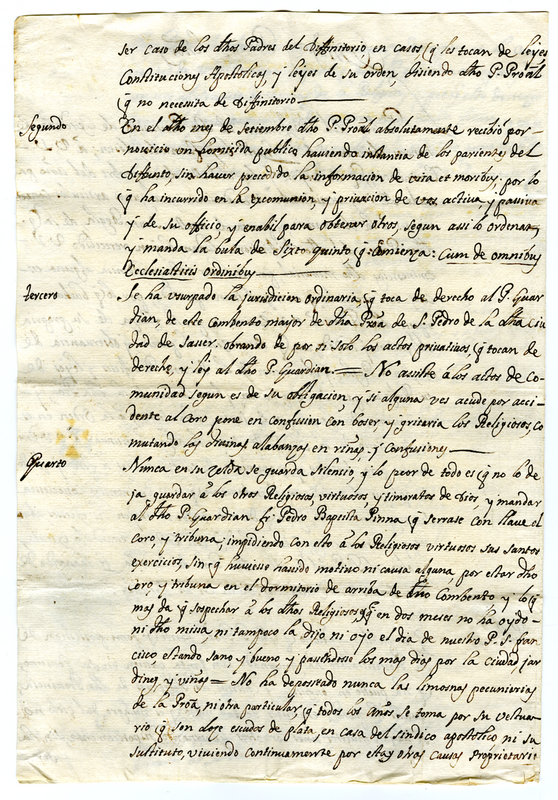 ser caso de los dhos Padres del Diffinitorio en casos q les tocan de leyes
Constituciones Apostolicas, y leyes de su orden, disiendo dho P. Proál
q no necesita de Diffinitorio
Segundo
En el dho mes de Setiembre dho P. Proál absolutamente recibió por
novicio un homicida publico haviendo instantia de los parientes del
Diffunto, sin haver precedido la informacion de vita et moribus, por lo
q ha incurrido en la excomunion, y privacion de vos activa, y passiva
y de su officio, y enabil para obtener otros, segun assi lo ordena,
y manda la bula de Sixto quinto q Comienza: Cum de omnibus
Ecclesiasticis ordinibus
tercero
Se ha vsurpado la jurisdicion ordinaria, q toca de derecho al P. Guar
dian, de este Combento mayor de dha Proa de S. Pedro de la dha Ciu
dad de Sacer. obrando de por si solo los actos privativos, q tocan de
derecho, y ley al dho P. Guardian. = No assiste à los actos de Co
munidad segun es de su obligacion, y si alguna ves acude por acci
dente al Coro pone en confusion con boses y griteria los Religiosos, co
mutando las divinas alabanzas en riñas, y Confusiones
Quarto
Nunca en su Celda se guarda silensio, y lo peor de todo es q no lo de
ja guardar à los otros Religiosos virtuosos, y timoratos de Dios y mandar
al dho P. Guardian fr Pedro Baptista Pinna q serrase con llave el
Coro, y tribuna, impidiendo con esto à los Religiosos virtuosos sus santos
exercicios, sin q huviesse havido motivo ni causa alguna, por estar dho
Coro, y tribuna en el dormitorio de arriba de dho Combento y lo q
mas da q sospechar à los dhos Religiosos, q en dos meses no ha oydo
ni dho missa ni tampoco la dijo ni oyo el dia de nuestro P. S. fran
cisco estando sano y bueno, y passeandose los mas dias por la ciudad, jar
dines y viñas = No ha depositado nunca las limosnas pecuniarias
de la Proa, ni otra particular, q todos los años se toma por su vestua
rio q son dose escudos de plata, en casa del sindico apostolico ni su
sustituto, viviendo continuamente por estas y otras causas Proprietario